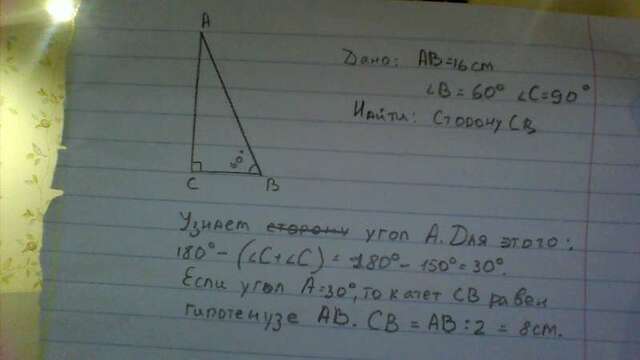 A
Дано: AB=16см
∠B=60° ∠C=90°
Найти: Сторону CB
60°
C B
Узнаем сторону угол A. Для этого:
180° - (∠C+∠C) = 180° - 150° = 30°.
Если угол A=30°, то катет CB равен
гипотенузе AB. CB = AB : 2 = 8см.